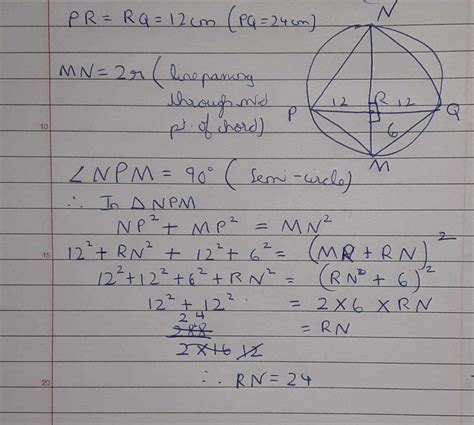 PR = RQ = 12cm (PQ=24cm)
MN = 2r (line passing
through mid
pt. of chord)
N
P
12
R
12
Q
6
M
∠NPM = 90° (semi-circle)
∴ In △NPM
NP² + MP² = MN²
12² + RN² + 12² + 6² = (MR + RN)²
12² + 12² + 6² + RN² = (RN + 6)²
12² + 12² = 2×6×RN
24
288 = RN
2×6 12
∴ RN = 24
10
15
20